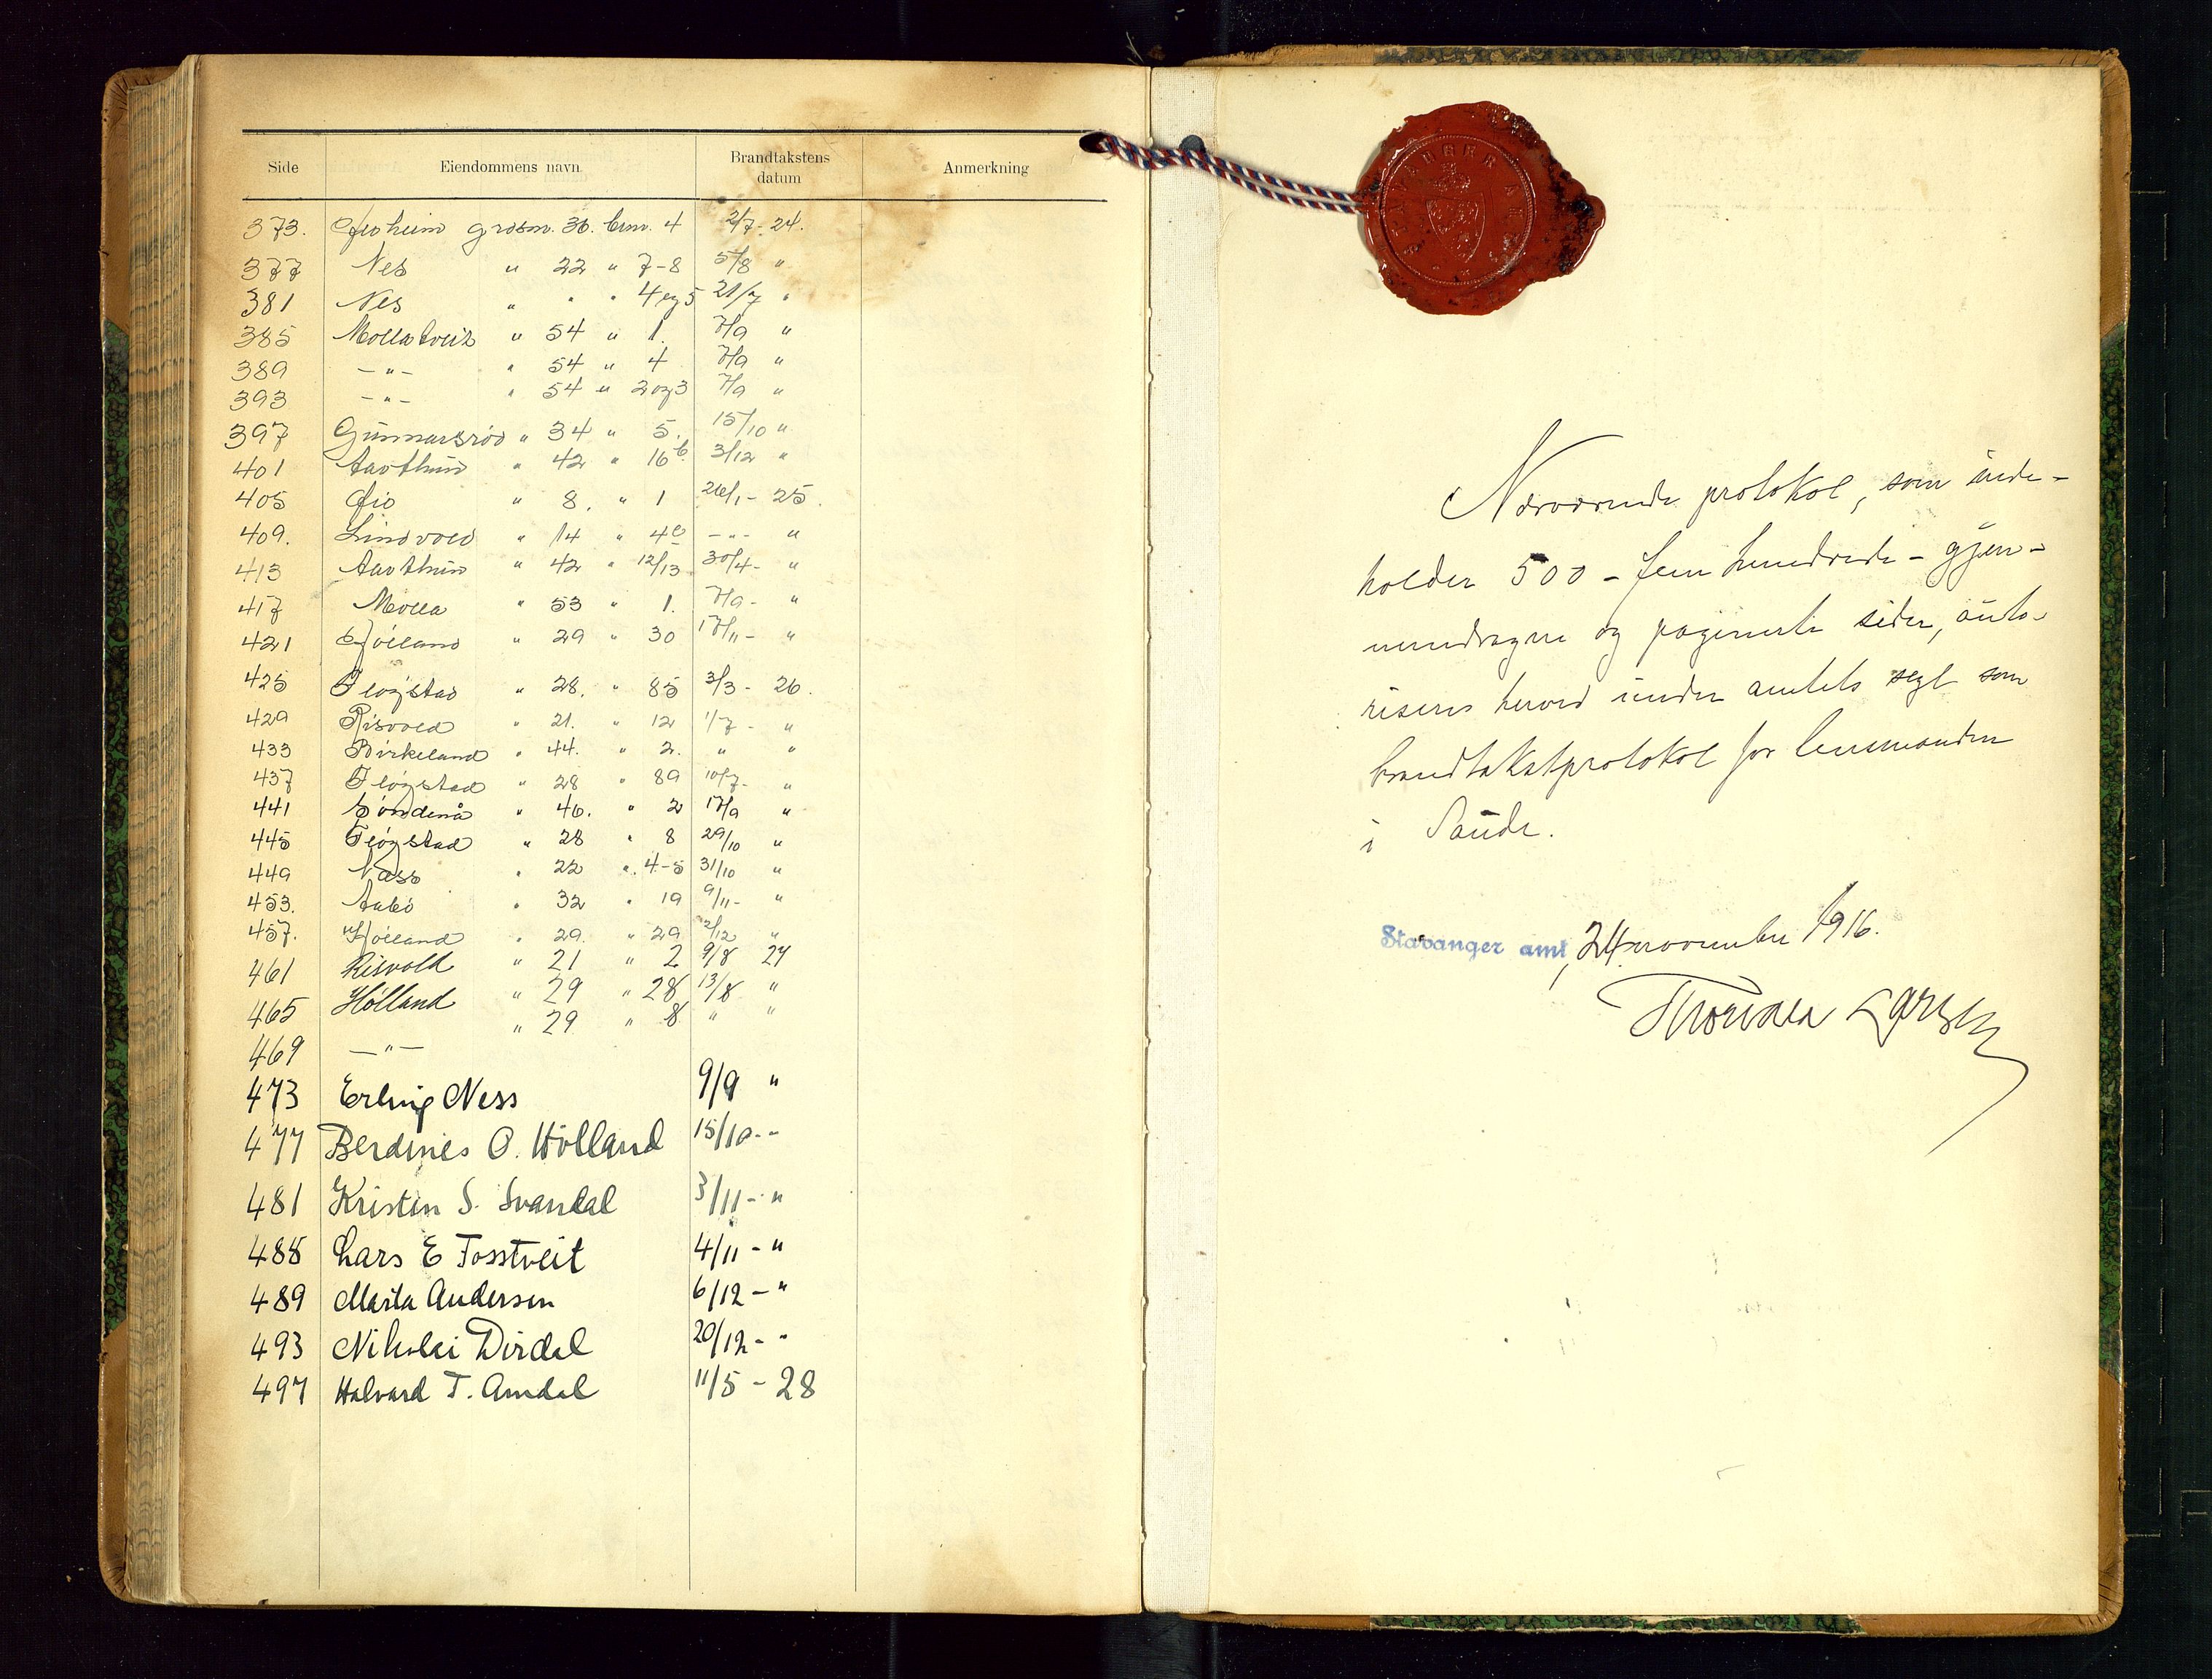 Side Eiendommens navn Brandtakstens datum Anmerkning
373. grdsm. 36. brn. 4 2/7-24.
377 Nes " 22 " 7-8 5/8 "
381 Nes " " " 4 og 5 21/7 "
385 " 54 " 1. 7/9 "
389 -"- " 54 " 4 7/9 "
393 -"- " 54 " 2 og 3 7/9 "
397 Gunnarsrød " 34 " 5. 15/10 "
401 Aarthun " 42 " 16b 3/12 "
405 " 8. " 1 26/1- 25.
409. Lindvold " 14 " -"- "
413 Aarthun " 42 " 12/13 30/4- "
417 Mølla " 53 " 1. 7/9- "
421 " 29 " 30 17/11- "
425 Fløgstad " 28. " 85 3/3- 26.
429 Risvold " 21. " 12 1/7- "
433 Birkeland " 44. " 2. " "
437 Fløgstad " 28 " 89 10/7- "
441 Søndenå " 46. " 2 17/9 "
445 Fløgstad " 28 " 8 29/10 "
449 Næss " 22 " 4-5 31/10 "
453. Aabø " 32 " 19 9/11- "
457. Hølland " 29. " 29 2/12 "
461 Risvold " 21 " 2 9/8 27
465 Hølland " 29 " 28 13/8 "
469 -"- " 29 " 8 " "
473 Erling Ness 9/9 "
477 Berdines O. Hølland 15/10-"
481 Kristen S. Svandal 3/11-"
485 Lars E Fosstveit 4/11-"
489 Marta Andersen 6/12-"
493 Nikolai Dirdal 20/12-"
497 Halvard T. Amdal 11/5-28
Nærværende protokol, som inde-
holder 500 - fem hundrede - gjen-
nemdragne og paginerte sider, auto-
riseres herved under amtets segl som
brandtakstprotokol for lensmanden
i Saude.
Stavanger amt, 24 november 1916.
Thorvald Larsen